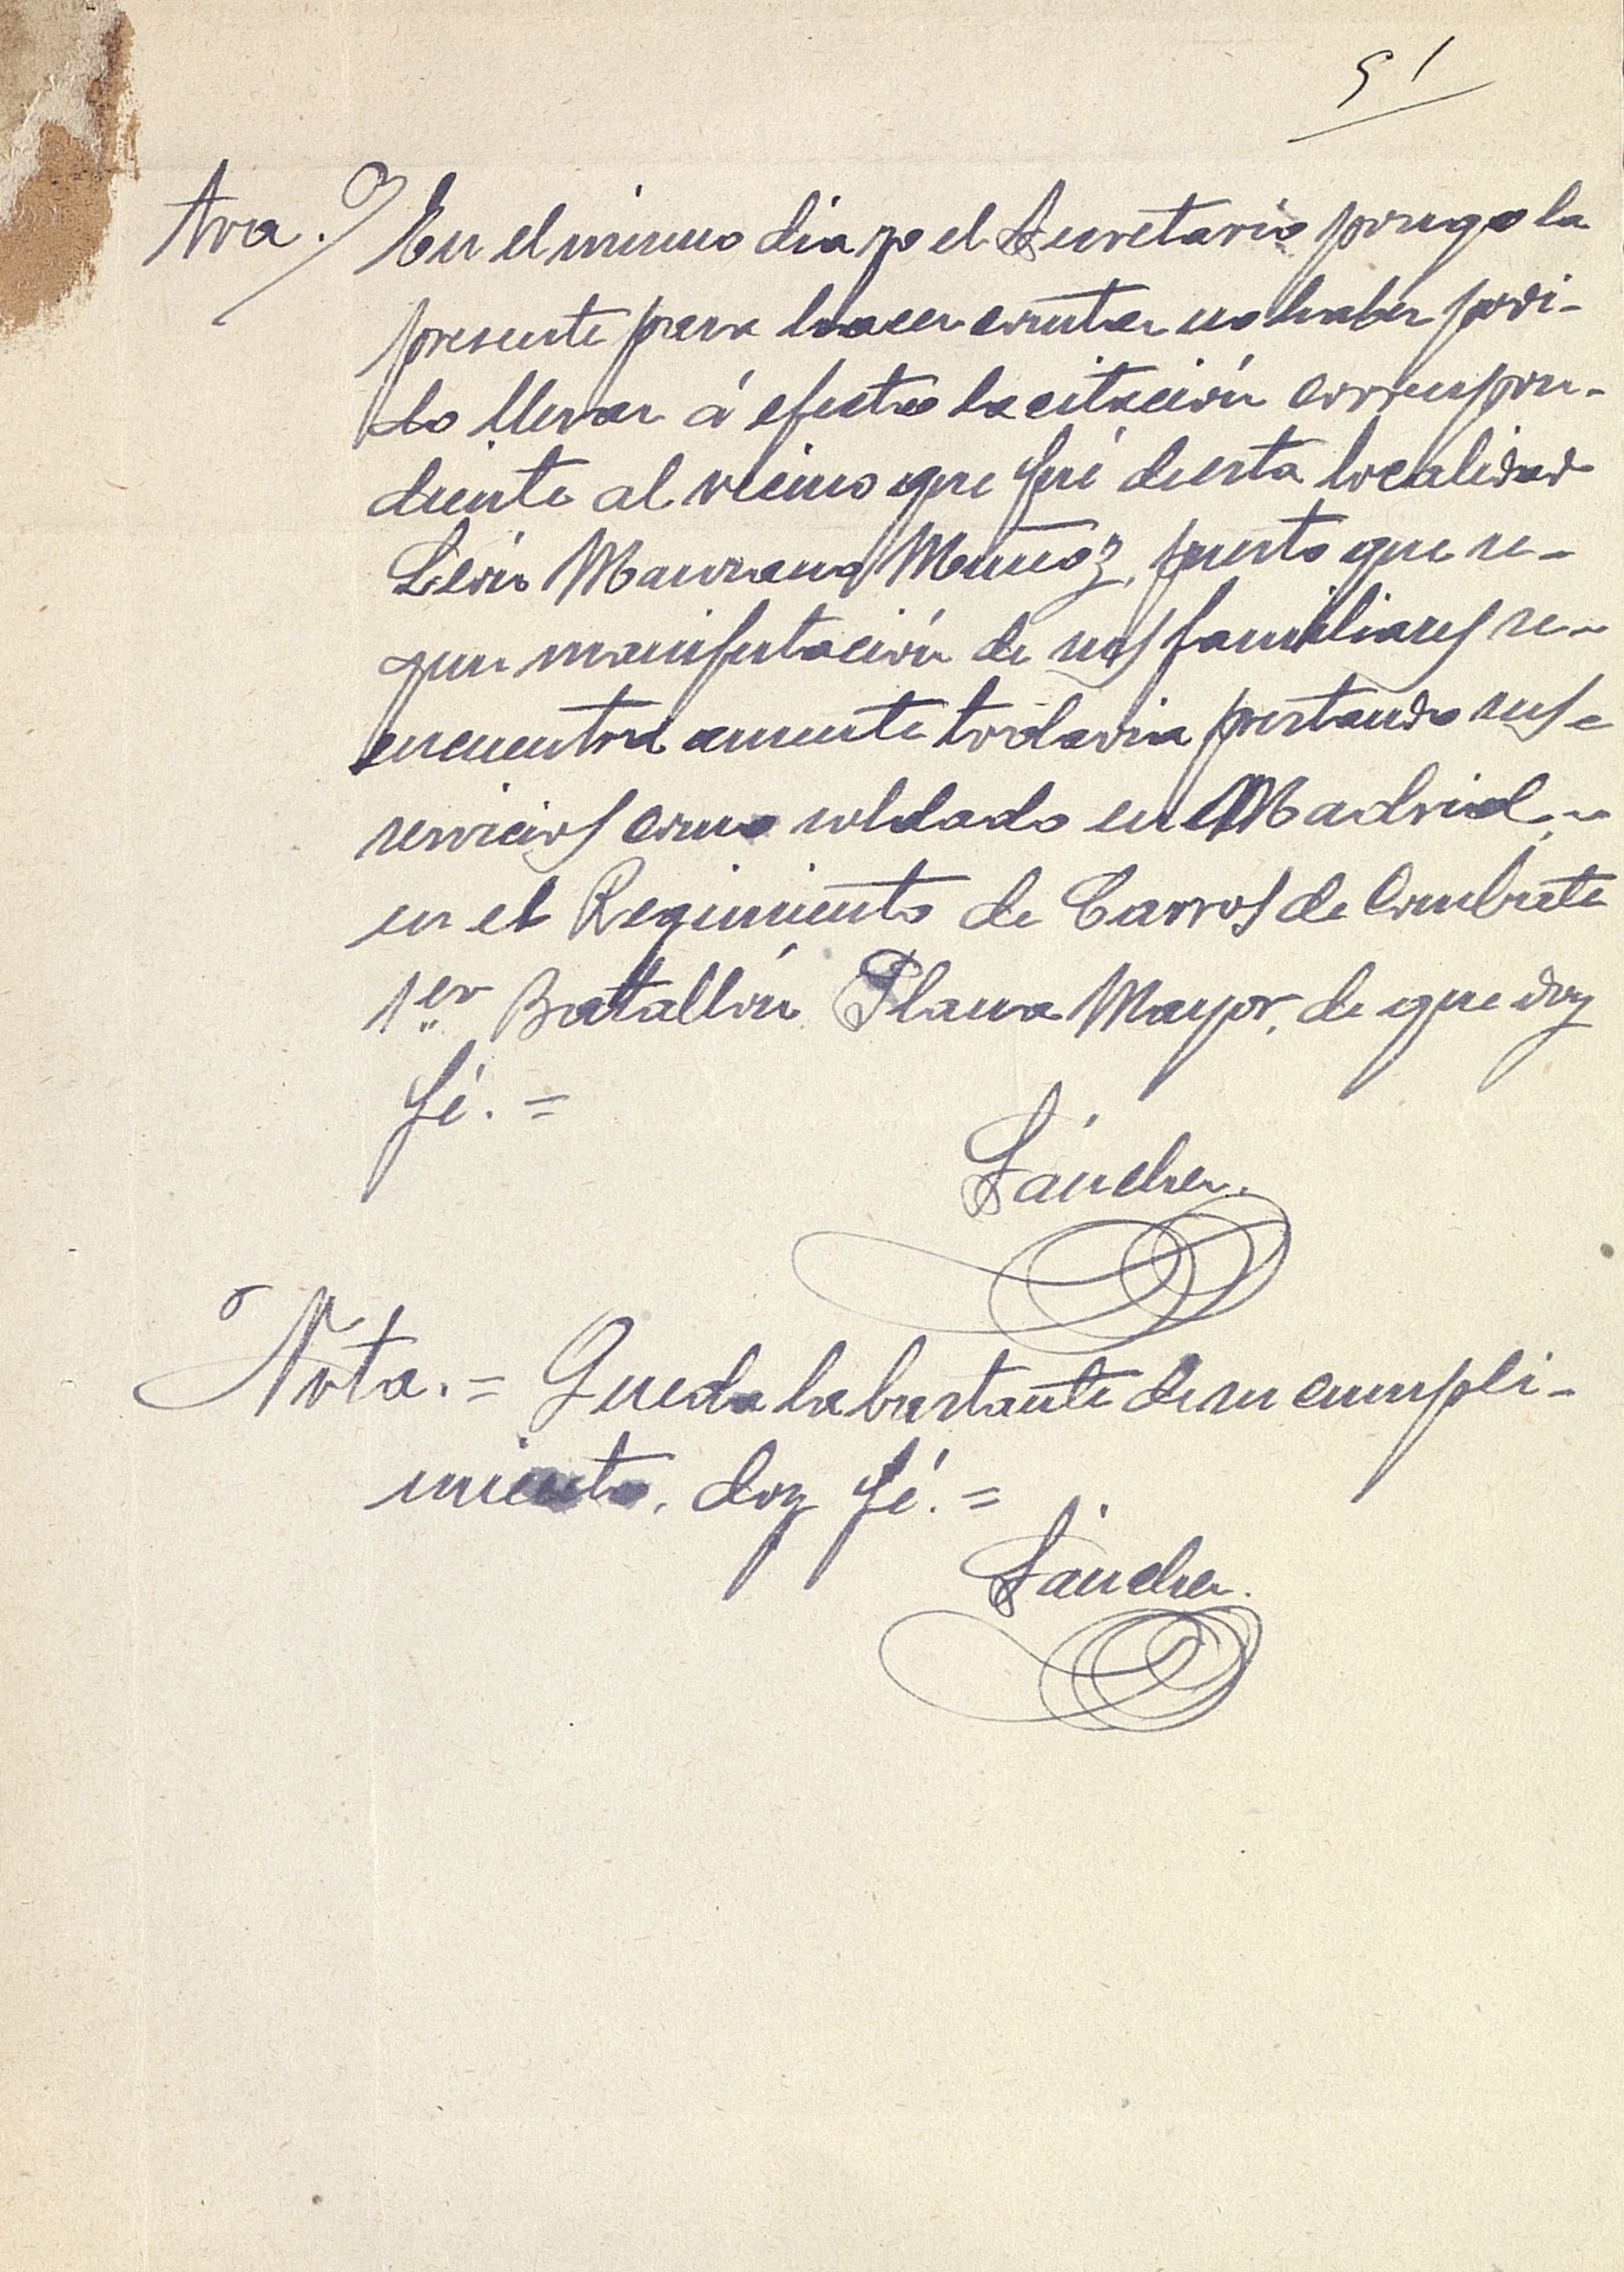 51
Otra. En el mismo dia yo el Secretario pongo la
presente para hacer constar no haber podi-
do llevar á efecto la citación correspon-
diente al vecino que fué de esta localidad
León Manzano Muñoz, puesto que se-
gun manifestación de sus familiares se
encuentra ausente todavia prestando sus
servicios como soldado en Madrid,
en el Regimiento de Carros de Combate
1er Batallón Plana Mayor, de que doy
fé. =
Sánchez.
Nota. = Queda la bastante de su cumpli-
miento, doy fé. =
Sánchez.